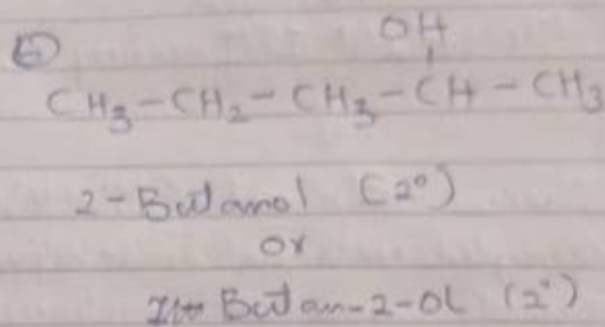 5
OH
CH₃-CH₂-CH₃-CH-CH₃
2-Butanol (2°)
or
Butan-2-OL (2°)